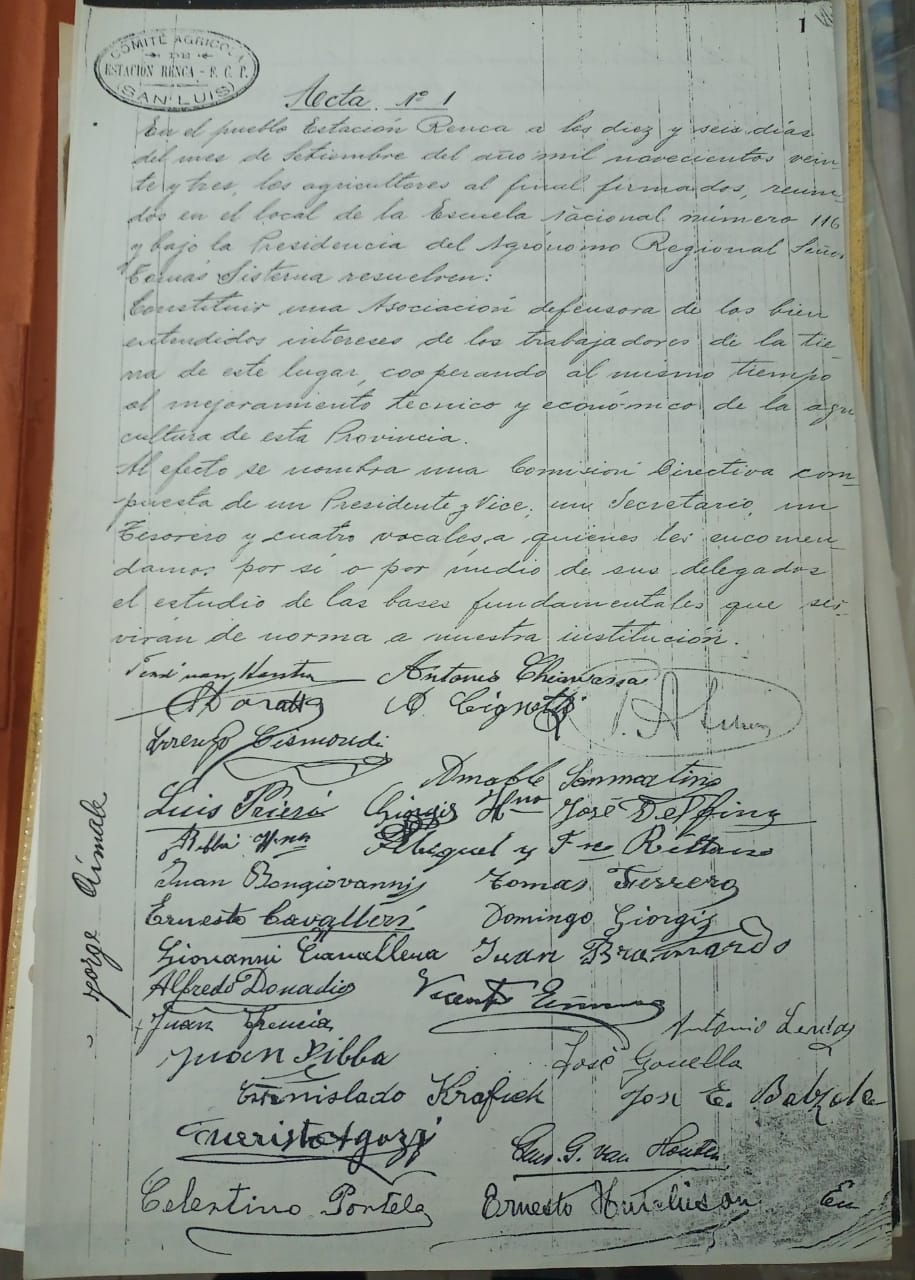 1
COMITÉ AGRICOLA
DE
ESTACIÓN RENCA - F. C. P.
(SAN LUIS)
Acta Nº 1
En el pueblo Estación Renca a los diez y seis dias
del mes de Setiembre del año mil novecientos vein-
te y tres, los agricultores al final firmados, reuni-
dos en el local de la Escuela Nacional número 116
y bajo la Presidencia del Agrónomo Regional Señor
Tomás Sisterna resuelven:
Constituir una Asociación defensora de los bien
entendidos intereses de los trabajadores de la tie-
rra de este lugar, cooperando al mismo tiempo
al mejoramiento técnico y económico de la agri
cultura de esta Provincia.
Al efecto se nombra una Comisión Directiva com-
puesta de un Presidente y Vice, un Secretario, un
Tesorero y cuatro vocales, a quienes les encomen-
damos por si o por medio de sus delegados
el estudio de las bases fundamentales que ser-
virán de norma a nuestra institución.
Antonio Chiavassa
A. Cignetti
Lorenzo Gismondi
Amable Sanmartino
Luis Giorgis Hno José Delfino
Hnos Miguel y Fco Rittano
Juan Bongiovanni Tomas Ferrero
Ernesto Cavalleri Domingo Giorgis
Giovanni Cavallera Juan Bramardo
Alfredo Donadio Vicente
Juan Antonio
Juan Ribba José Gonella
Estanislado José E.
Agozzi G. van Houten
Celestino Portela Ernesto
Jorge Rimale